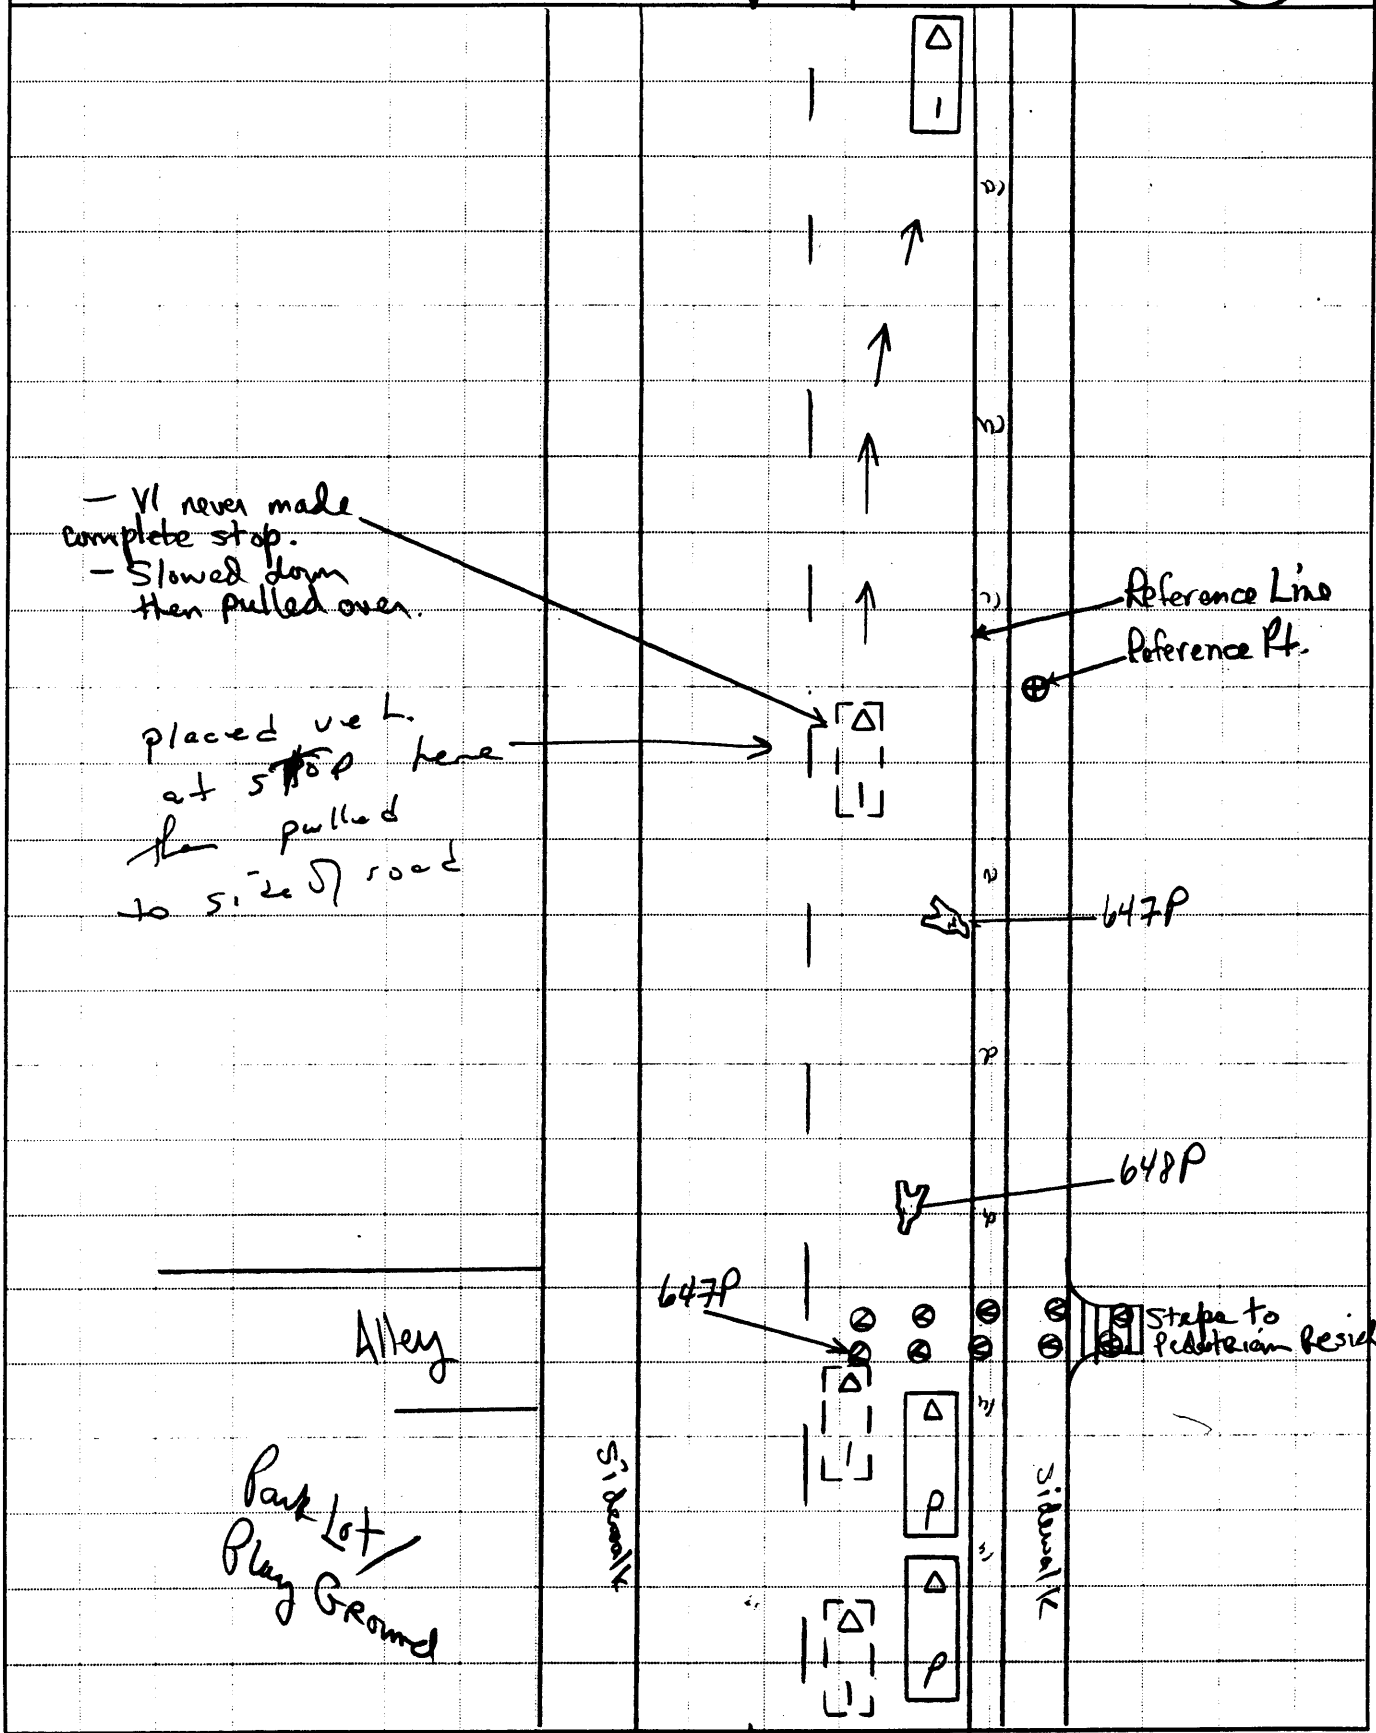 1
- V1 never made
complete stop.
- Slowed down
then pulled over.
Reference Line
Reference Pt.
placed veh.
at stop here
then pulled
to side of road
1
647P
648P
647P
Steps to
Pedestrian Resid
Alley
1
P
Sidewalk
Sidewalk
Park Lot/
Play Ground
1
P